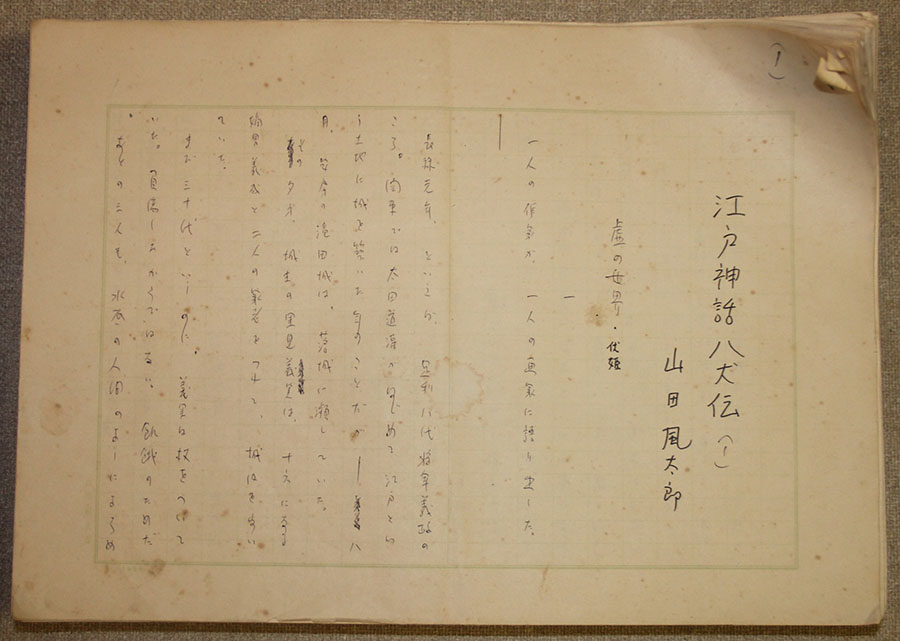 (1)
江戸神話八犬伝 (1)
山田風太郎
虚の世界・伏姫
一
一人の作家が、一人の画家に語り出した。
長禄元年、というから、足利八代将軍義政の
ころ。関東では太田道灌がはじめて江戸とい
う土地に城を築いた年のことだが――八
月、安房の滝田城は、落城に瀕していた。
その夕方、城主の里見義実は、十六になる
嫡男義成と二人の家老をつれて、城内を歩い
ていた。
まだ三十代というのに、義実は杖をついて
いた。負傷したからではない。飢餓のためだ
。あとの三人も、水底の人間のようによろめ